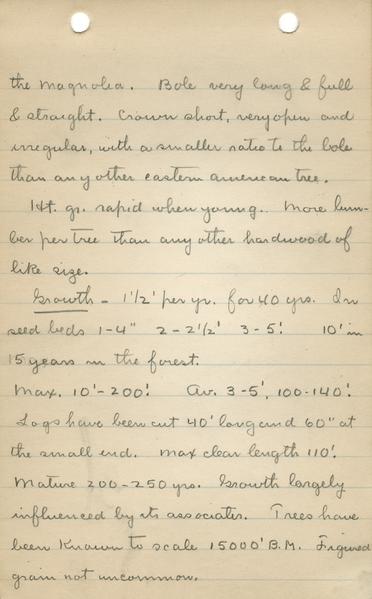 the magnolia. Bole very long & full
& straight. Crown short, very open and
irregular, with a smaller ratio to the bole
than any other eastern american tree.
Ht. gr. rapid when young. More lum-
ber per tree than any other hardwood of
like size.
Growth - 1 1/2' per yr. for 40 yrs. In
seed beds 1-4" 2-2 1/2' 3-5'. 10' in
15 years in the forest.
Max. 10'-200'. Av. 3-5', 100-140'.
Logs have been cut 40' long and 60" at
the small end. Max clear length 110'.
Mature 200-250 yrs. Growth largely
influenced by its associates. Trees have
been known to scale 15000' B.M. Figured
grain not uncommon.